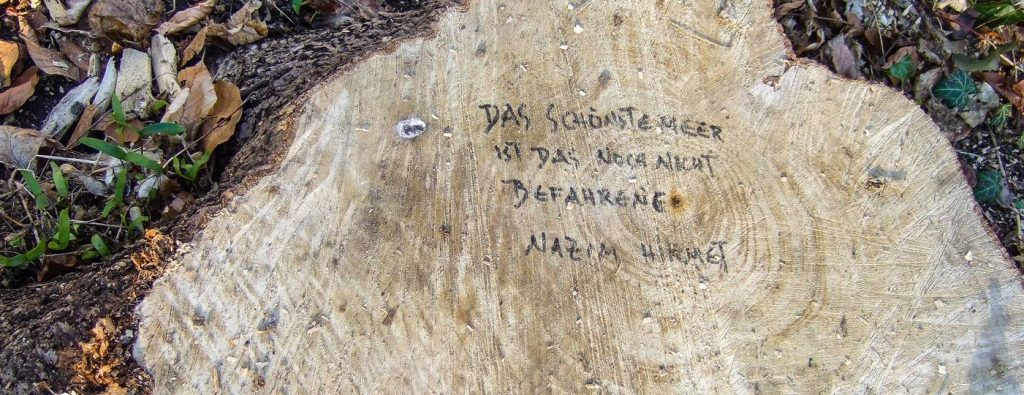 DAS SCHÖNSTE MEER
IST DAS NOCH NICHT
BEFAHRENE
NAZIM HIKMET